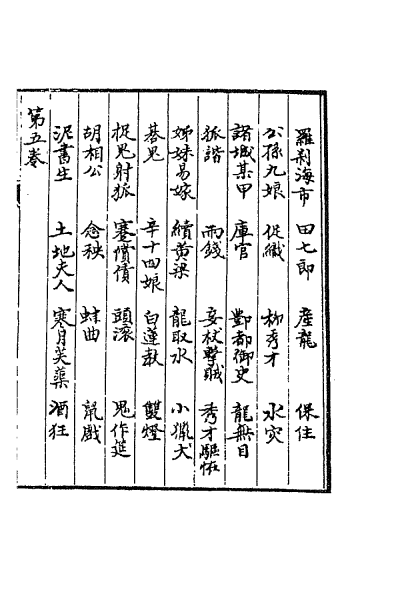 羅刹海市 田七郎 產龍 保住
公孫九娘 促織 柳秀才 水灾
諸城某甲 庫官 酆都御史 龍無目
狐諧 雨錢 妾杖擊賊 秀才驅怪
姊妹易嫁 續黃粱 龍取水 小獵犬
棊鬼 辛十四娘 白蓮教 雙燈
捉鬼射狐 蹇償債 頭滾 鬼作筵
胡相公 念秧 蛙曲 鼠戲
泥書生 土地夫人 寒月芙蕖 酒狂
第五卷